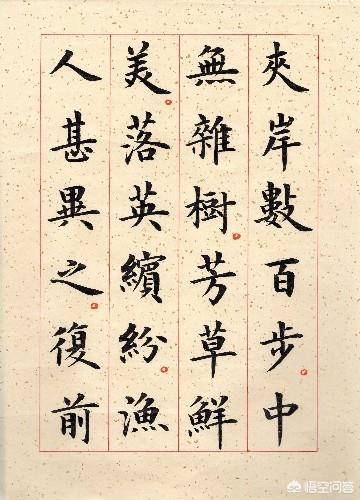 夾岸數百步中
無雜樹芳草鮮
美落英繽紛漁
人甚異之復前
悟空问答